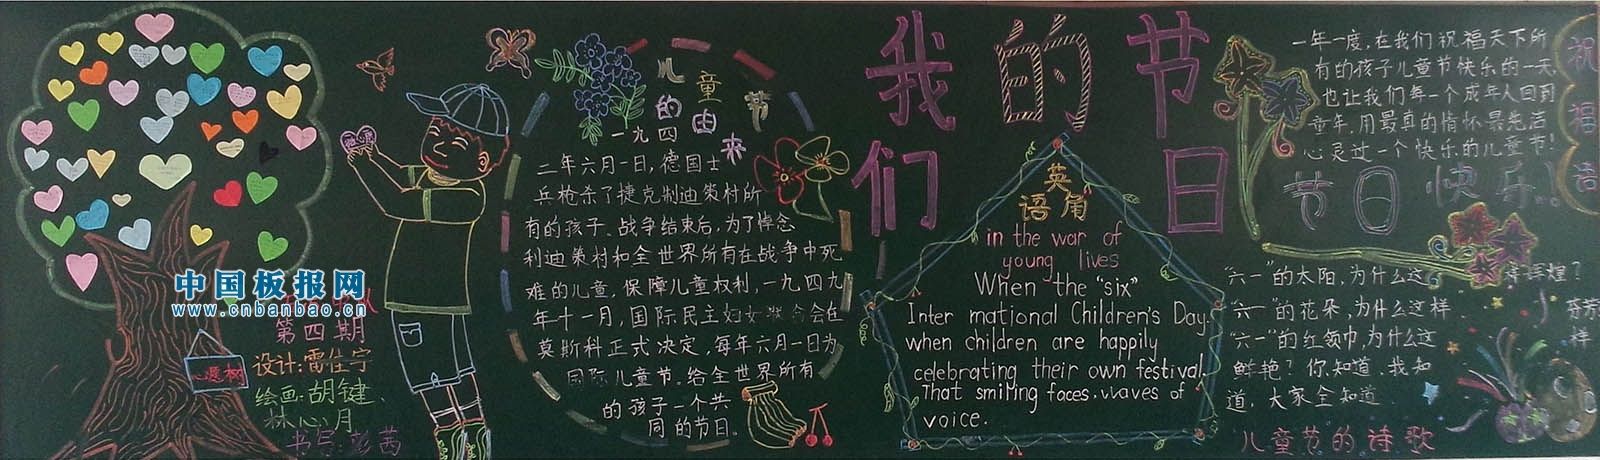 我们的节日
中国板报网
www.cnbanbao.cn
第四期
设计:雷佳宇
绘画:胡键、
林心月
书写:彭茜
心愿树
儿童节
的由来
一九四
二年六月一日,德国士
兵枪杀了捷克利迪策村所
有的孩子。战争结束后,为了悼念
利迪策村和全世界所有在战争中死
难的儿童,保障儿童权利,一九四九
年十一月,国际民主妇女联合会在
莫斯科正式决定,每年六月一日为
国际儿童节。给全世界所有
的孩子一个共
同的节日。
英
语角
in the war of
young lives
When the "six"
Inter mational Children's Day.
when children are happily
celebrating their own festival.
That smiling faces.waves of
voice.
祝福语
一年一度,在我们祝福天下所
有的孩子儿童节快乐的一天,
也让我们每一个成年人回到
童年,用最真的情怀最纯洁
心灵过一个快乐的儿童节!
节日快乐!
"六一"的太阳,为什么这 辉煌?
"六一"的花朵,为什么这样 芬芳
"六一"的红领巾,为什么这 样
鲜艳?你知道.我知
道,大家全知道
"儿童节"的诗歌